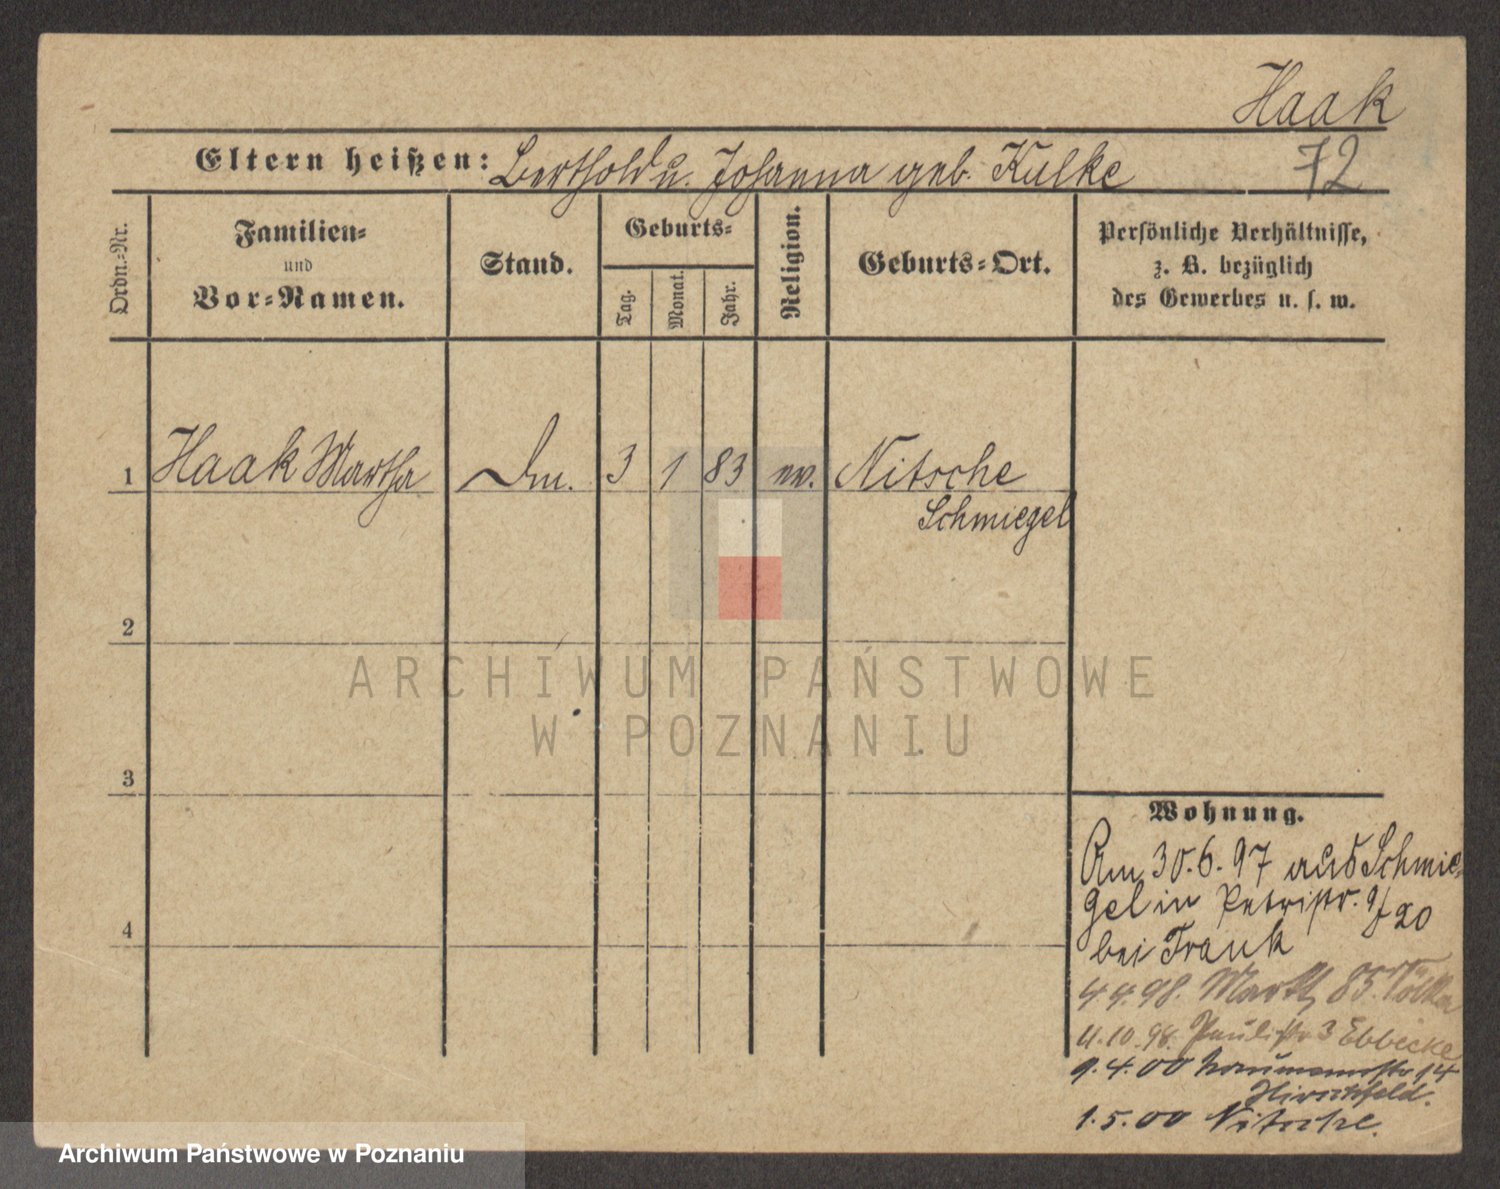 Haak
Eltern heißen: Berthold u. Johanna geb. Kulke 72
Ordn.-Nr.
Familien- und Vor-Namen.
Stand.
Geburts-
Tag.
Monat.
Jahr.
Religion.
Geburts-Ort.
Persönliche Verhältnisse,
z. B. bezüglich
des Gewerbes u. s. w.
1 Haak Martha Dm. 3 1 83 ev. Nitsche
Schmiegel
2
3
4
Wohnung.
Am 30.6.97 aus Schmie-
gel in Petristr. 9/20
bei Frank
4.4.98. Markt 85.
11.10.98. Paulistr 3 Ebbecke
9.4.00 Naumannstr 14
Hirschfeld.
1.5.00 Nitsche.
ARCHIWUM PAŃSTWOWE
W POZNANIU
Archiwum Państwowe w Poznaniu